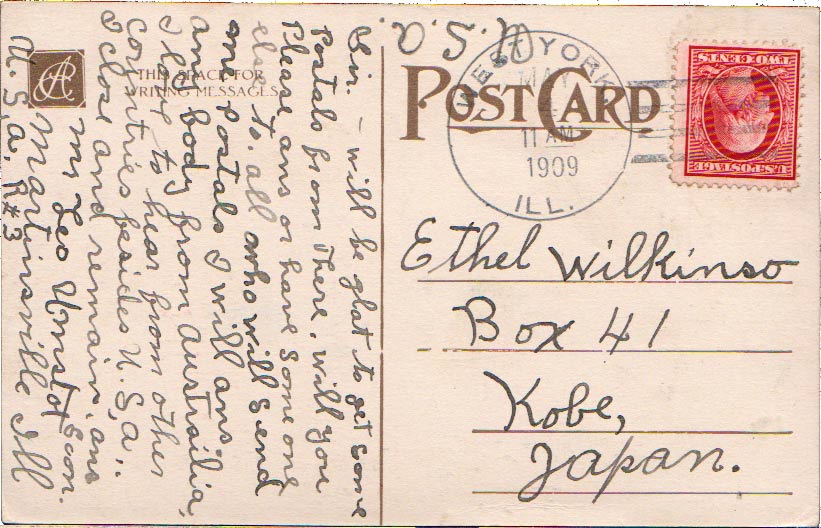 U.S.a.
POST CARD
THIS SPACE FOR
WRITING MESSAGES
WEST YORK
MAY
11 AM
1909
ILL.
TWO CENTS
U.S. POSTAGE
Sir. – will be glat to get some
Postals from There. will you
Please ans or have some one
else to. all who will send
postals I will ans.
any body from Austrailia,
I to hear from other
countries besides U.S,a..
I close and remain, ans
Mr Leo Umstot soon.
Martinsville Ill
U.S,a. R#3
Ethel Wilkinso
Box 41
Kobe,
Japan.